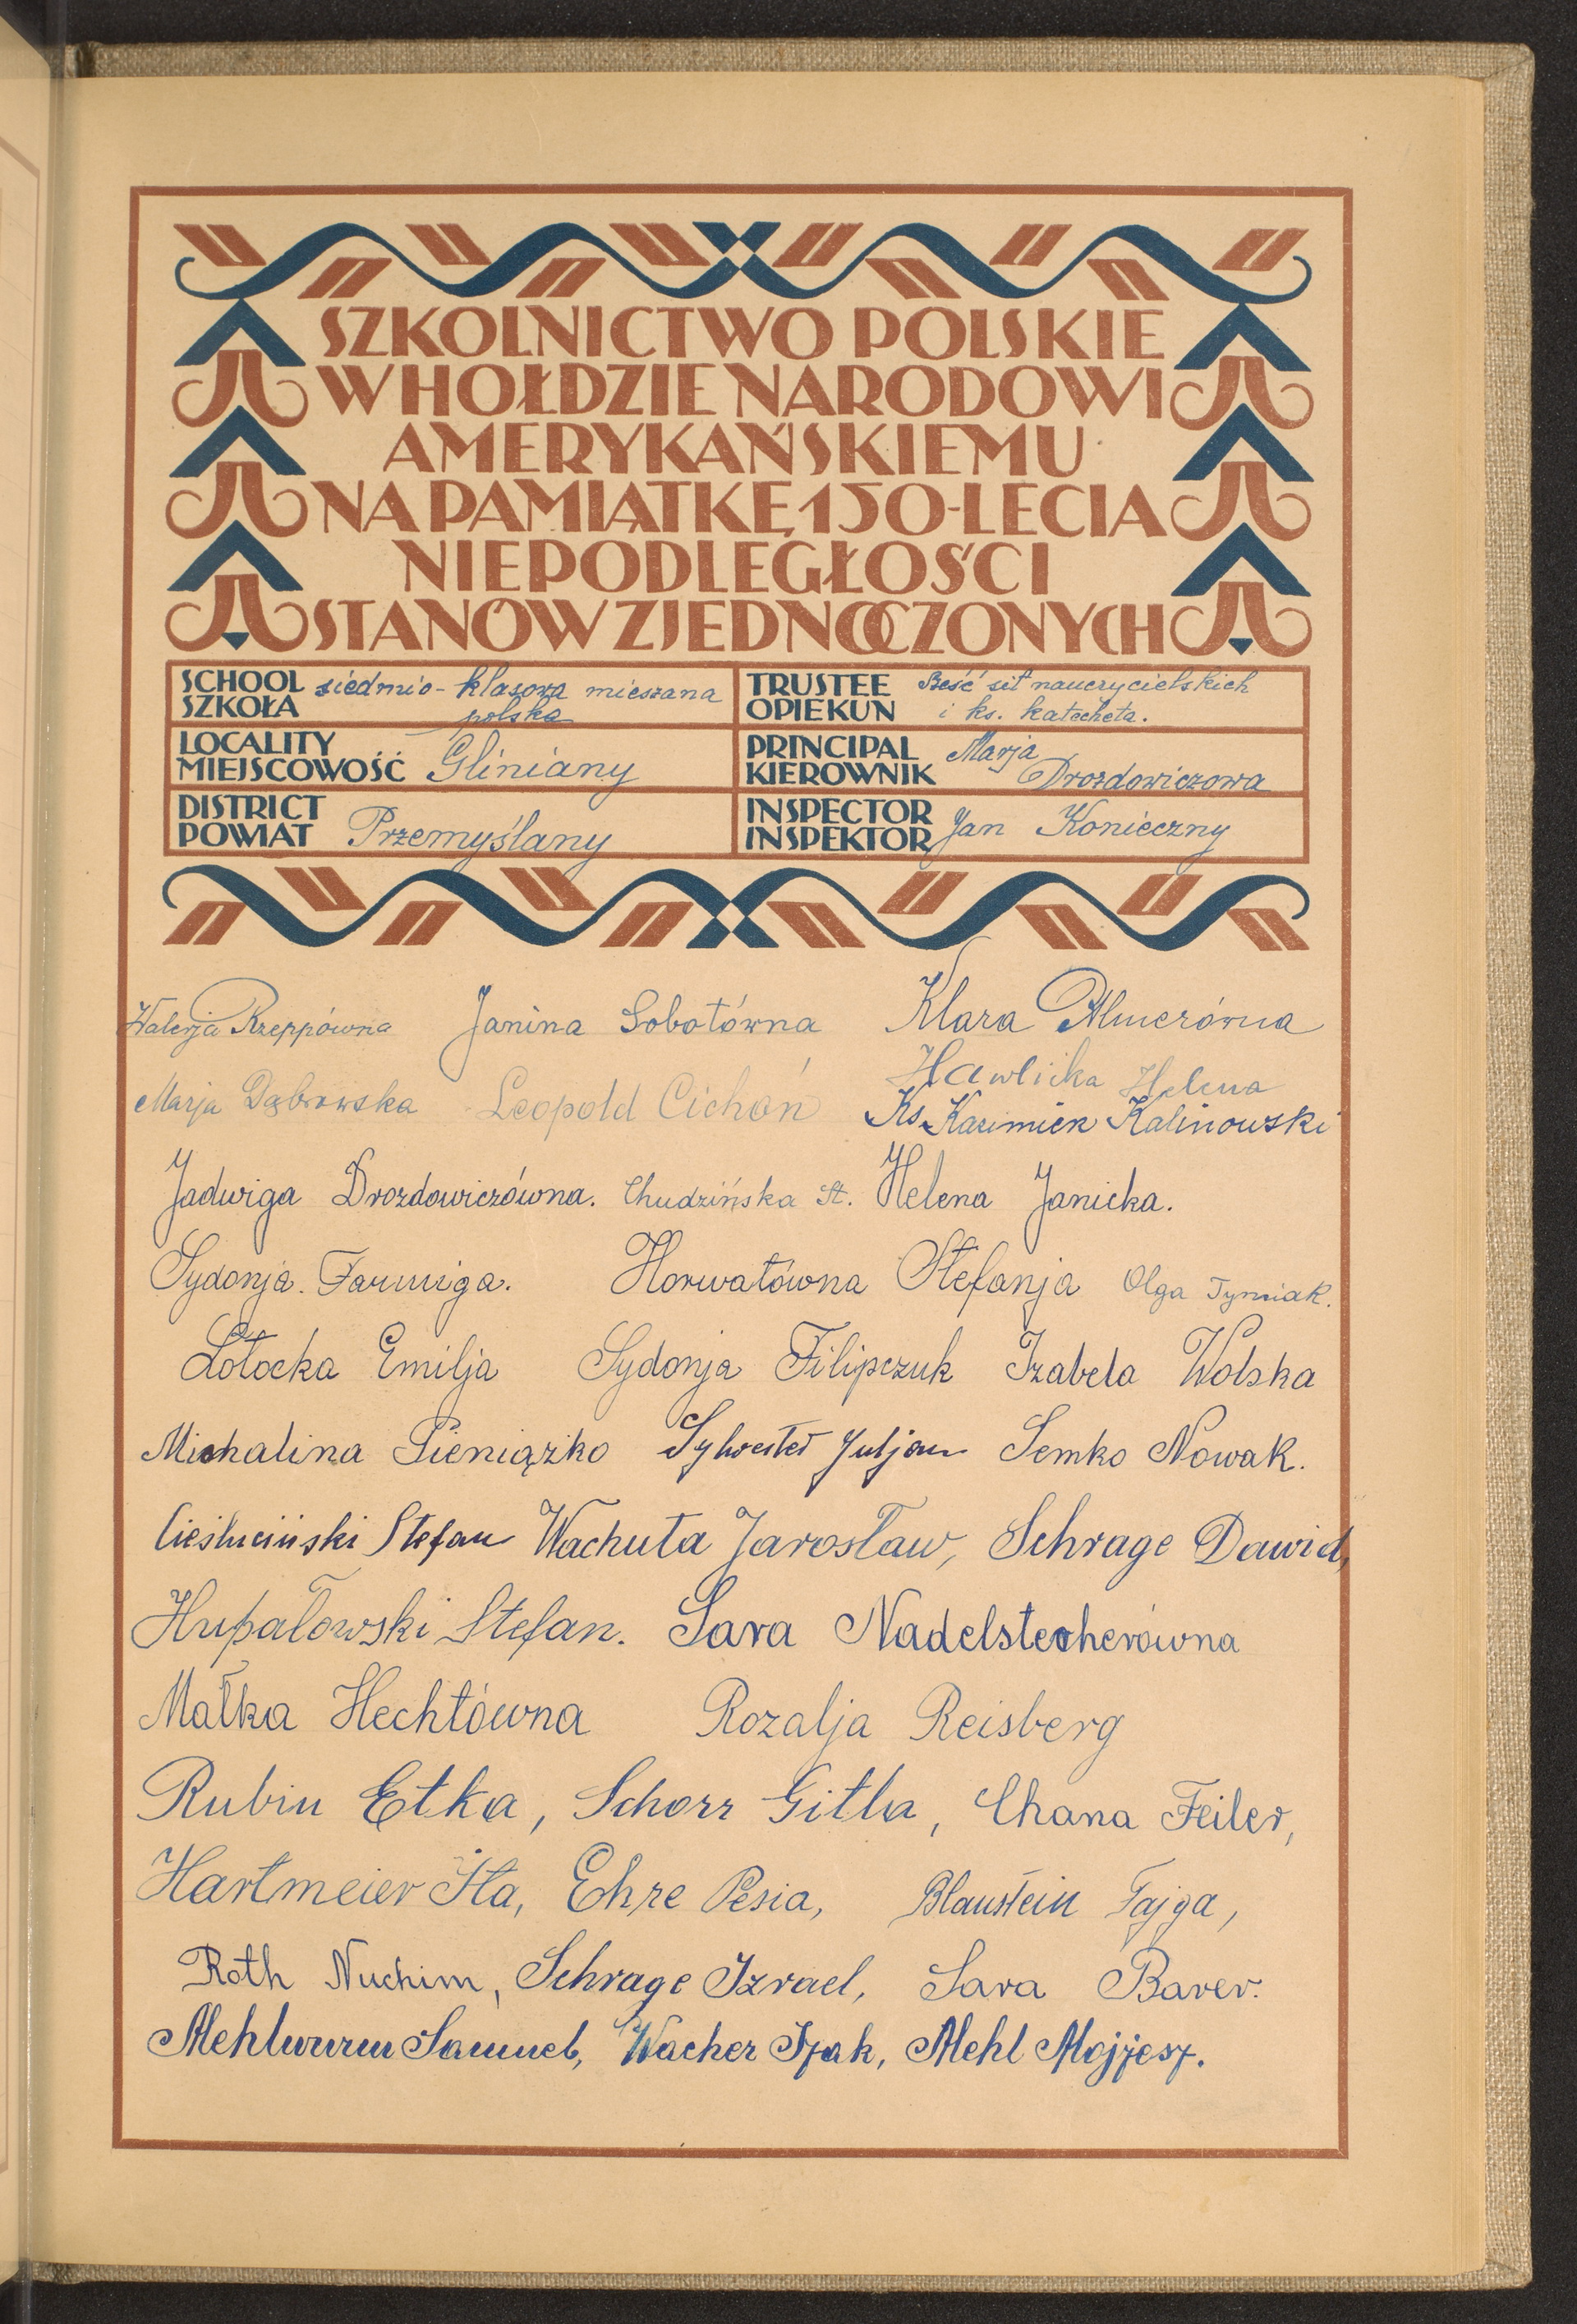 SZKOLNICTWO POLSKIE
W HOŁDZIE NARODOWI
AMERYKAŃSKIEMU
NA PAMIĄTKĘ 150-LECIA
NIEPODLEGŁOŚCI
STANÓW ZJEDNOCZONYCH
SCHOOL
SZKOŁA
siedmio-klasowa mieszana
polska
TRUSTEE
OPIEKUN
Sześć sił nauczycielskich
i ks. katecheta.
LOCALITY
MIEJSCOWOŚĆ
Gliniany
PRINCIPAL
KIEROWNIK
Marja
Drozdowiczowa
DISTRICT
POWIAT
Przemyślany
INSPECTOR
INSPEKTOR
Jan Konieczny
Walerja Rzeppówna Janina Sobotówna Klara Almerówna
Hawlicka Helena
Marja Dąbrowska Leopold Cichoń Ks. Kazimierz Kalinowski
Jadwiga Drozdowiczówna. Chudzińska St. Helena Janicka.
Sydonja Farmiga. Horwatówna Stefanja Olga Tymiak.
Łotocka Emilja Sydonja Filipczuk Izabela Wolska
Michalina Pieniążko Sylwester Juljan Semko Nowak.
Cieśluciński Stefan Wachuta Jarosław, Schrage Dawid,
Hupałowski Stefan. Sara Nadelstecherówna
Małka Hechtówna Rozalja Reisberg
Rubin Etka, Schorr Gitla, Chana Feiler,
Hartmeier Ita, Ehre Pesia, Blaustein Fajga,
Roth Nuchim, Schrage Izrael, Sara Barer.
Mehlwurm Samuel, Wacher Izak, Mehl Mojżesz.